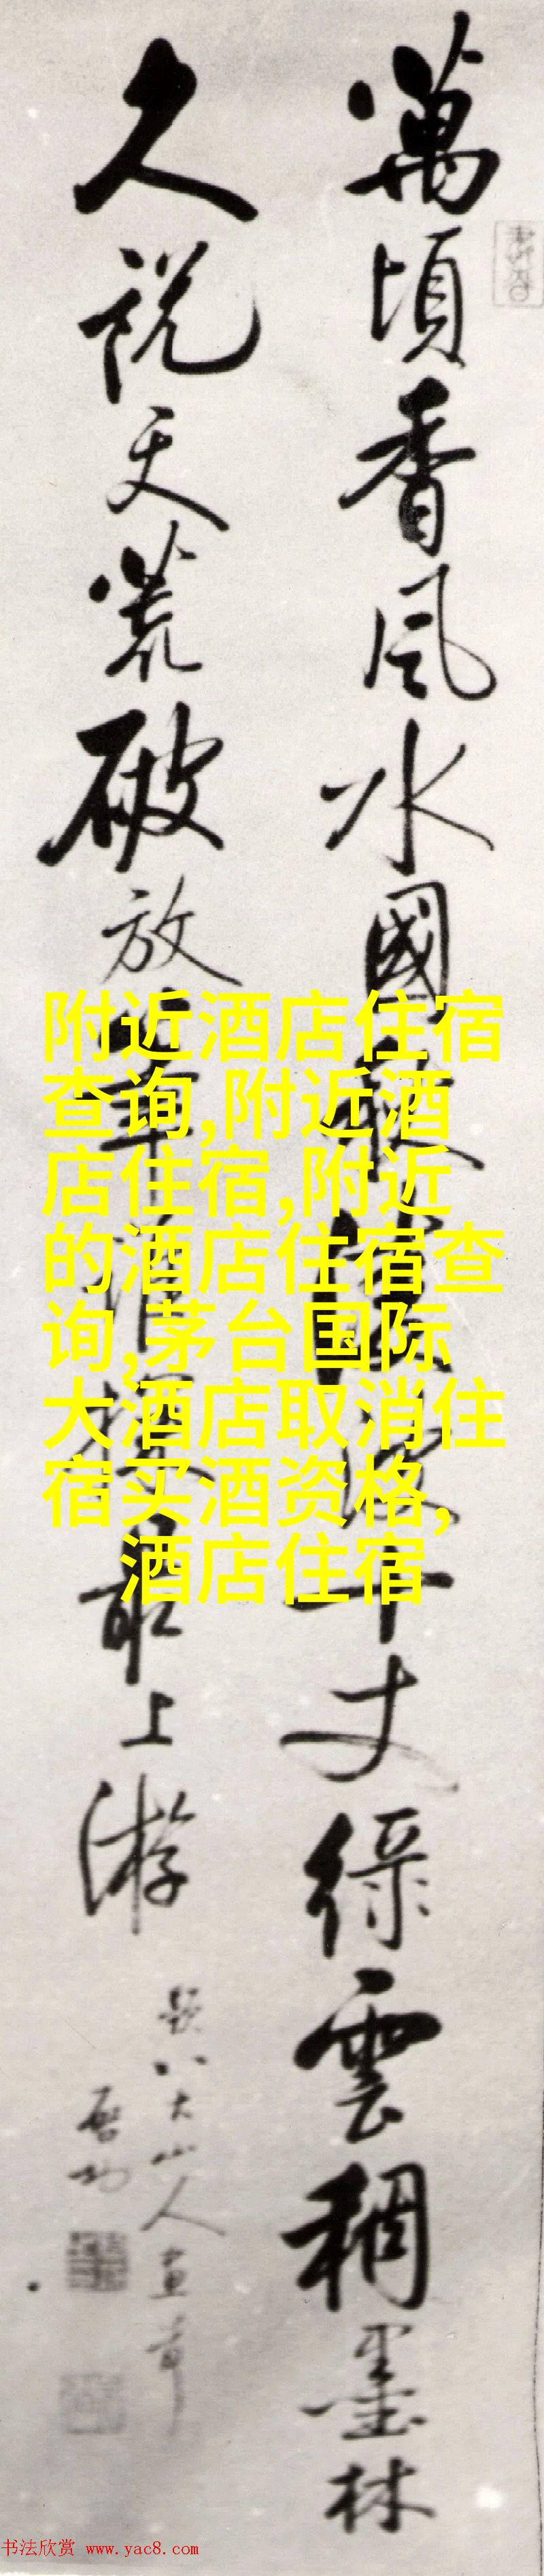 萬頃香風水國秋丈綠雲稠墨林
久說天荒破放筆誰探最上游
題八大山人畫
啟功
附近酒店住宿
查询,附近酒
店住宿,附近
的酒店住宿查
询,茅台国际
大酒店取消住
宿买酒资格,
酒店住宿
书法欣赏 www.yac8.com